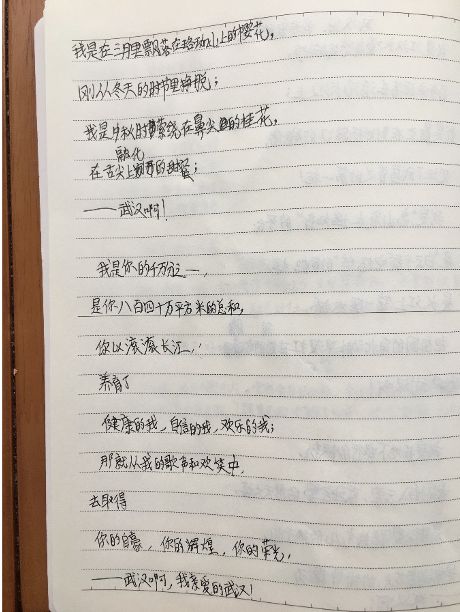 我是在三月里飘落在珞珈山上的樱花,
刚从冬天的时节里挣脱;
我是中秋时萦绕在鼻尖的桂花,
融化
在舌尖上的甜蜜;
——武汉啊!
我是你的千万分之一,
是你八百四十万平方米的总和,
你以滚滚长江,
养育了
健康的我,自信的我,欢乐的我;
那就从我的歌声和欢笑中,
去取得
你的自豪,你的辉煌,你的荣光,
——武汉啊,我亲爱的武汉!